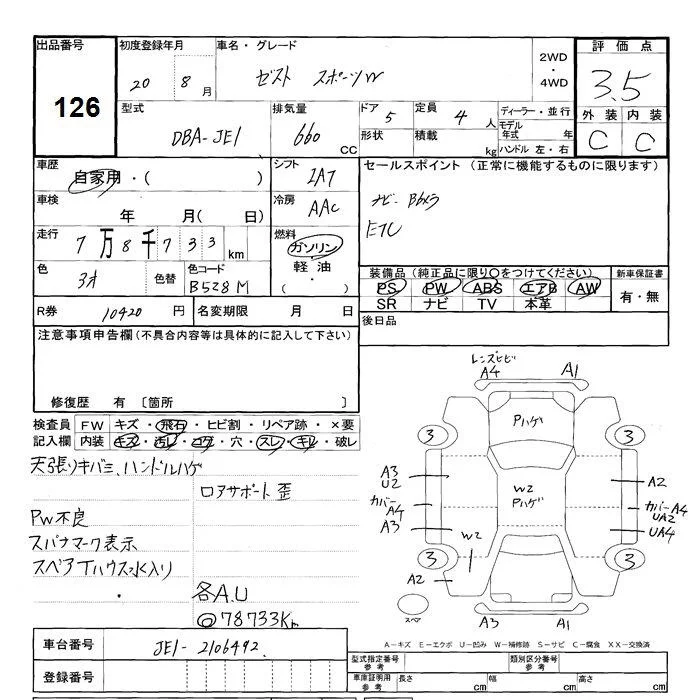 出品番号 初度登録年月 車名・グレード 2WD・4WD 評価点
126 20 8月 ゼスト スポーツW 3.5
型式 排気量 ドア 定員 ディーラー・並行 外装 内装
DBA-JE1 660 CC 5 4人 モデル年式 年 C C
形状 積載 kg ハンドル 左・右
車歴 自家用・( ) シフト IAT セールスポイント (正常に機能するものに限ります)
車検 年 月( 日) 冷房 AAC ナビ
ETC
走行 7万8千733km 燃料 ガソリン・軽油・( )
色 色替 色コード B528M
装備品 (純正品に限り○をつけてください) 新車保証書
PS PW ABS エアB AW 有・無
SR ナビ TV 本革
R券 10420円 名変期限 月 日 後日品
注意事項申告欄(不具合内容等は具体的に記入して下さい)
修復歴 有 〔箇所 〕
検査員 FW キズ・飛石・ヒビ割・リペア跡・×要
記入欄 内装 キズ・汚レ・コゲ・穴・スレ・キレ・破レ
天張りキバミ、ハンドルハゲ
ロアサポート歪
PW不良
スパナマーク表示
スペアTハウス水入り
各A.U
@78733Km
レンズヒビ
A4 A1
Pハゲ
3 3
A3
U2
A2
W2
Pハゲ
カバーA4
カバーA4
UA2
A3 UA4
W2
3 3
A2
スペア
A3 A1
A-キズ E-エクボ U-凹み W-補修跡 S-サビ C-腐食 XX-交換済
車台番号 JE1-2106492
登録番号
型式指定番号 参考 類別区分番号 参考
車庫証明用 参考 長さ cm 幅 cm 高さ cm